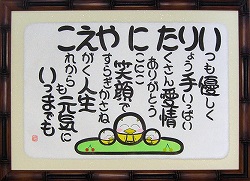 いつも優しく
りょう手いっぱい
たくさん愛情
ありがとう
にこにこ
笑顔で
やすらぎかさね
えがく人生
これからも元気に
いつまでも